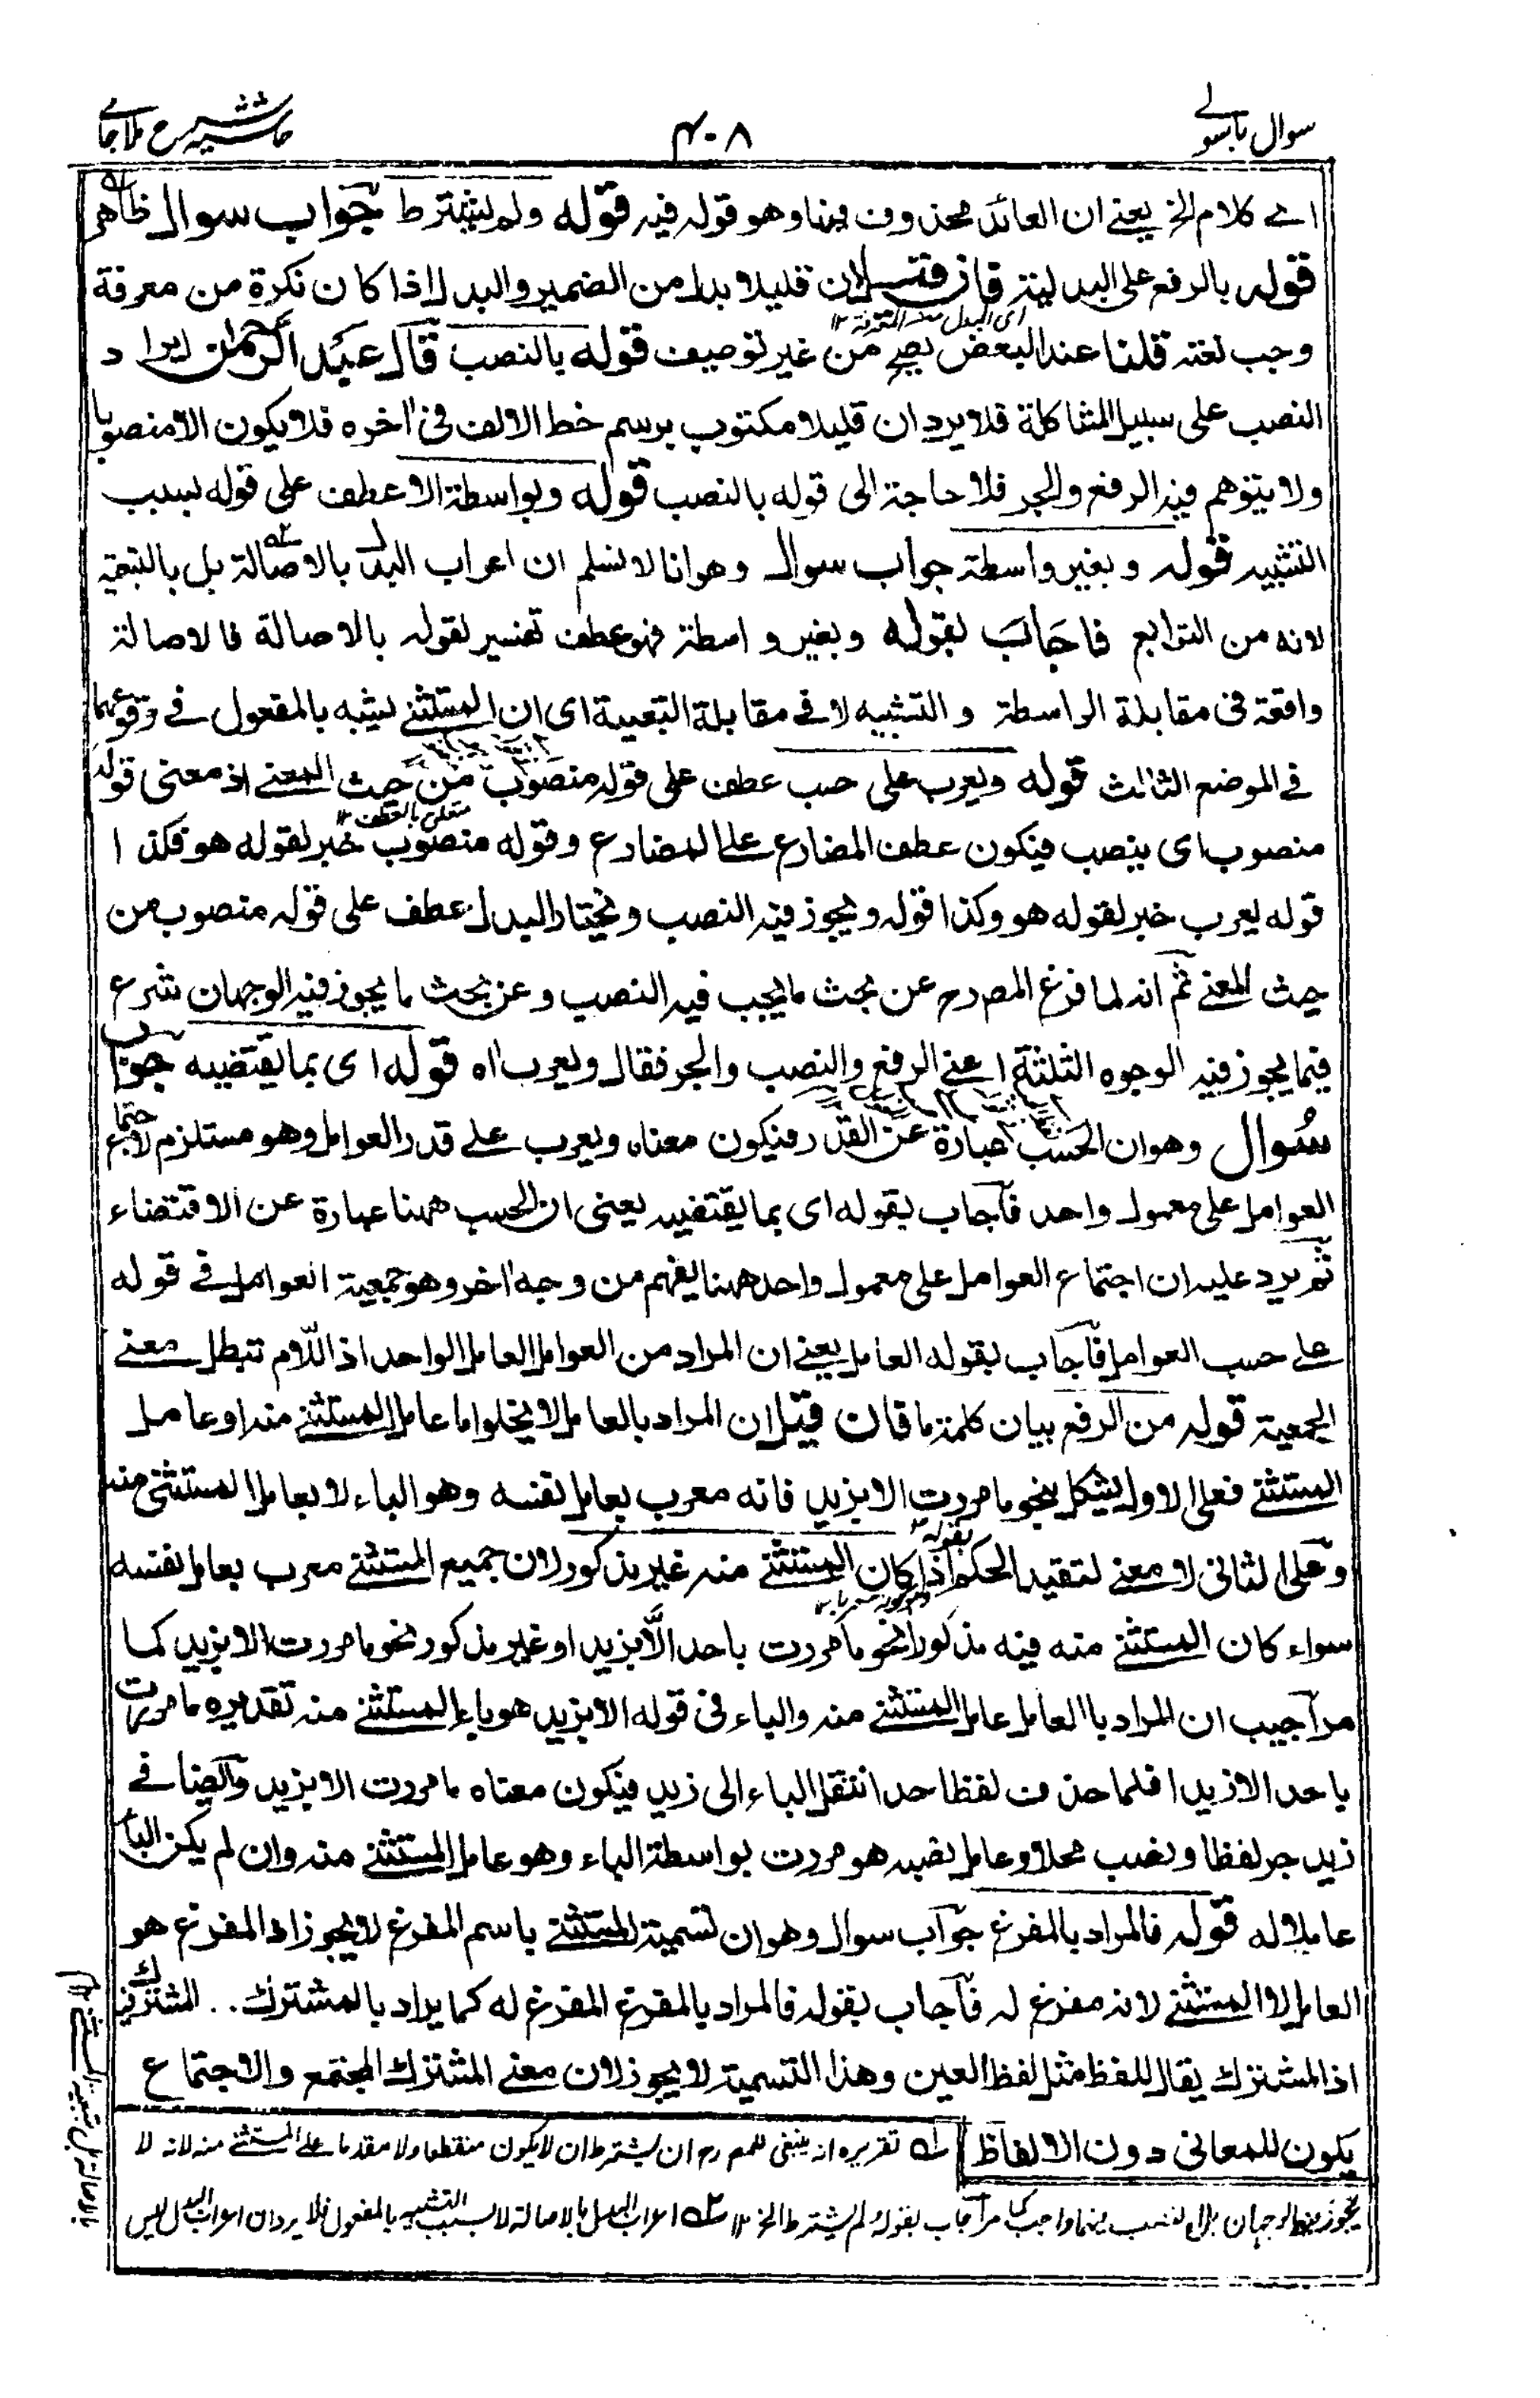 سوال باسولے
۴۰۸
حاشیہ شرح ملا جامے
اے کلام الخ یعنے ان العائد محذوف فیہا وھو قولہ فیہ قولہ ولم یشترط جواب سوال ظاھر
قولہ بالرفع علی البدلیتہ فان قیل لان قلیلا بدل من الضمیر والبدل اذا کان نکرۃ من معرفۃ
ای المبدل من المعرفۃ ۱۲
وجب نعتہ قلنا عند البعض یصح من غیر توصیف قولہ بالنصب قال عبد الرحمان ایراد
النصب علی سبیل المشاکلۃ فلا یرد ان قلیلا مکتوب برسم خط الالف فی اخرہ فلا یکون الا منصوبا
ولا یتوھم فیہ الرفع والجر فلا حاجۃ الی قولہ بالنصب قولہ وبواسطۃ الا عطف علی قولہ بسبب
التشبیہ قولہ وبغیر واسطۃ جواب سوال وھو انا لا نسلم ان اعراب البدل بالاصالۃ بل بالتبعیۃ
لانہ من التوابع فاجاب بقولہ وبغیر واسطۃ فھو عطف تفسیر لقولہ بالاصالۃ فالاصالۃ
واقعۃ فی مقابلۃ الواسطۃ والتشبیہ لا فی مقابلۃ التبعیۃ ای ان المستثنے لیشبہ بالمفعول فے وقوعھما
فے الموضع الثالث قولہ ویعرب علی حسب عطف علی قولہ منصوب من حیث المعنے اذ معنی قولہ
متعلق بالعطف ۱۲
منصوب ای ینصب فیکون عطف المضارع علے المضارع وقولہ منصوب خبر لقولہ ھو فکذا
قولہ یعرب خبر لقولہ ھو وکذا قولہ ویجوز فیہ النصب ویختار البدل عطف علی قولہ منصوب من
حیث المعنے ثم انہ لما فرغ المصرح عن بحث ما یجب فیہ النصب وعن بحث ما یجوز فیہ الوجھان شرع
فیما یجوز فیہ الوجوہ الثلثۃ اعنے الرفع والنصب والجر فقال ویعرب اہ قولہ ای بما یقتضیہ جواب
سوال وھو ان الحسب عبارۃ عن القدر فیکون معناہ ویعرب علے قدر العوامل وھو مستلزم لاجتماع
العوامل علی معمول واحد فاجاب بقولہ ای بما یقتضیہ یعنی ان الحسب ھھنا عبارۃ عن الاقتضاء
ثم یرد علیہ ان اجتماع العوامل علی معمول واحد ھھنا یفھم من وجہ اخر وھو جمعیۃ العوامل فے قولہ
علے حسب العوامل فاجاب بقولہ العامل یعنے ان المراد من العوامل العامل الواحد اذ اللام تبطل معنے
الجمعیۃ قولہ من الرفع بیان کلمۃ ما فان قیل ان المراد بالعامل لا یخلوا اما عامل المستثنے منہ او عامل
المستثنے فعلی الاول یشکل بنحو ما مررت الا بزید فانہ معرب بعامل نفسہ وھو الباء لا بعامل المستثنی منہ
بقولہ
وعلی الثانی لا معنے لتقید الحکم اذا کان المستثنے منہ غیر مذکور لان جمیع المستثنے معرب بعامل نفسہ
سواء کان المستثنے منہ فیہ مذکورا نحو ما مررت باحد الا بزید او غیر مذکور نحو ما مررت الا بزید کما
مر اجیب ان المراد با العامل عامل المستثنے منہ والباء فی قولہ الا بزید ھو باء المستثنے منہ تقدیرہ ما مررت
باحد الا زیدا فلما حذف لفظ احد انتقل الباء الی زید فیکون معناہ ما مررت الا بزید وایضا فے
زید جر لفظا ونصب محلا وعامل نصبہ ھو مررت بواسطۃ الباء وھو عامل المستثنے منہ وان لم یکن الباء
عاملا لہ قولہ فالمراد بالمفرغ جواب سوال وھو ان تسمیۃ المستثنے باسم المفرغ لا یجوز اذ المفرغ ھو
العامل لا المستثنے لانہ مفرغ لہ فاجاب بقولہ فالمراد بالمفرغ المفرغ لہ کما یراد بالمشترک .. المشترک فیہ
اذ المشترک یقال للفظ مثل لفظ العین وھذا التسمیۃ لا یجوز لان معنے المشترک المجتمع والاجتماع
یکون للمعانی دون الالفاظ
لہ تقریرہ انہ ینبغی للمصرح ان یشترط ان لا یکون منقطعا ولا مقدما علے المستثنے منہ لانہ لا
یجوز فیھا الوجھان بل النصب فیھما واجب کما مر اجاب بقولہ لم یشترط الخ ۱۲ ۲ہ اعراب البدل بالاصالۃ لا بسبب التشبیہ بالمفعول فلا یرد ان اعراب البدل لیس
بالاصالۃ بل بتبعیۃ المستثنے ۱۲